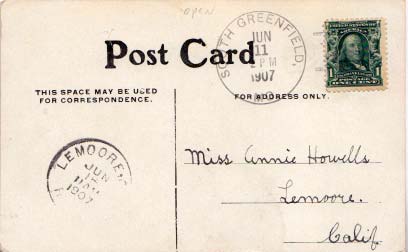 OPEN
Post Card
THIS SPACE MAY BE USED
FOR CORRESPONDENCE.
FOR ADDRESS ONLY.
SOUTH GREENFIELD,
JUN
11
2 PM
1907
MO.
1 1
ONE CENT
LEMOORE
JUN
1907
Miss Annie Howells
Lemoore.
Calif